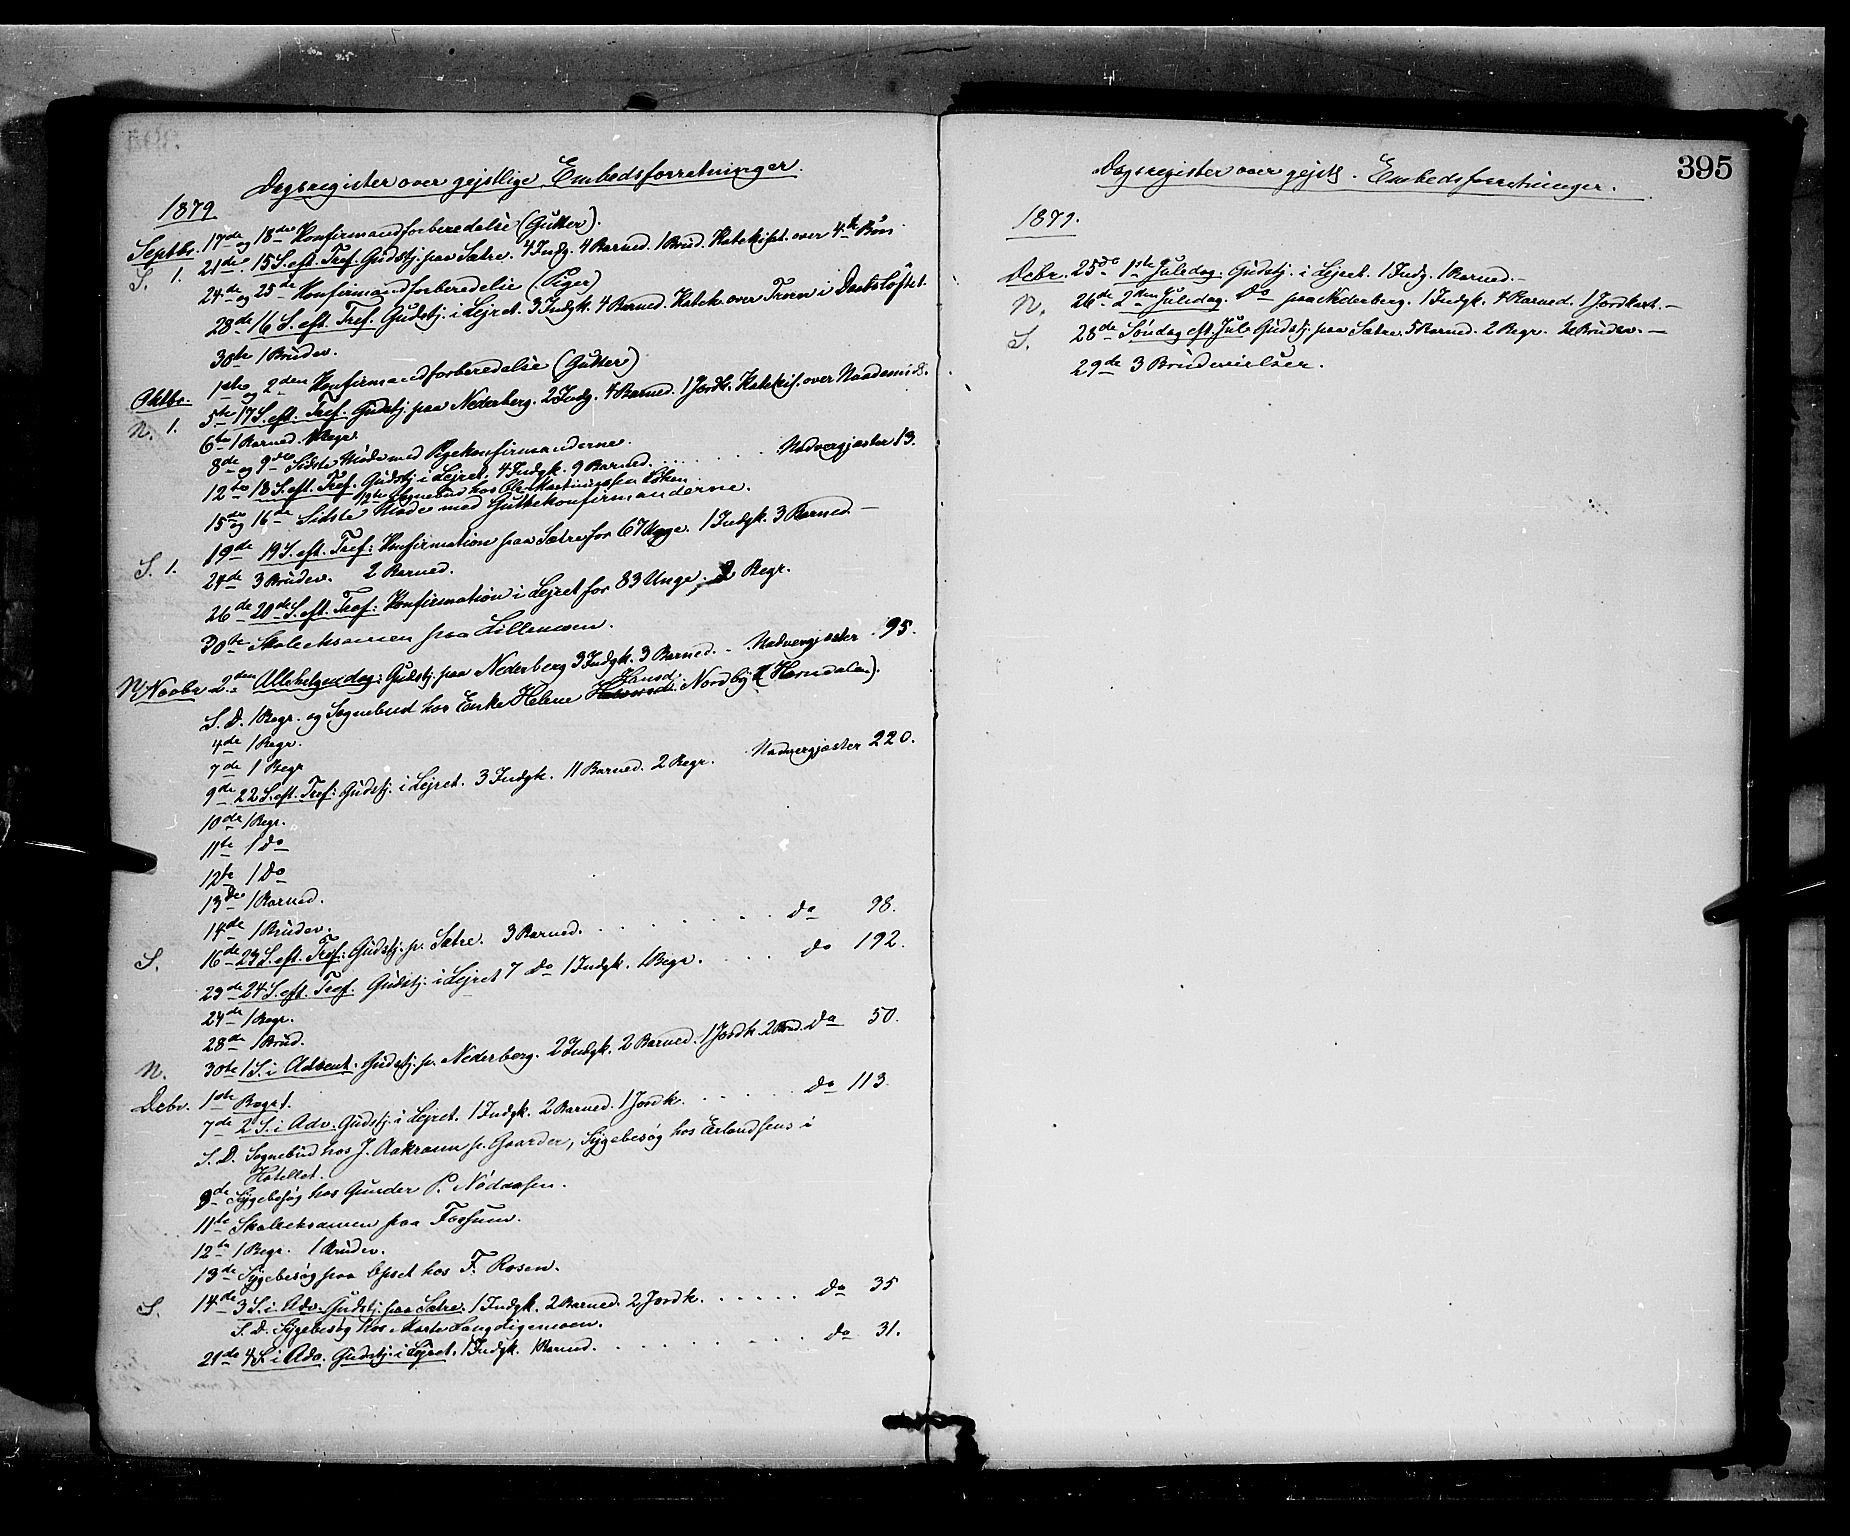 Dagsregister over gejstlige Embedsforretninger.
1879
Septbr. 17de og 18de Konfirmandforberedelse (Gutter).
S. 1. 21de. 15 S. eft. Tref. Gudstj. paa Sætre. 4 Indg. 4 Barned. 1 Brud. Katekis. over 4de Bøn
24de og 25de Konfirmandforberedelse (Piger)
28de 16 S. eft. Tref. Gudstj. i Lejret. 3 Indgk. 4 Barned. Katek. over Troen i Daabsløftet.
30te 1 Brudev.
Oktbr. 1ste og 2den Konfirmandforberedelse (Gutter)
N. 1. 5te 17 S. eft. Tref. Gudstj. paa Nederberg. 2 Indg. 4 Barned. 1 Jordk. Katekis. over Naademidl.
6te 1 Barned. 1 Begr.
8de og 9de Sidste Møde med Pigekonfirmanderne.
12te 18 S. eft. Tref. Gudstj. i Lejret. 4 Indgk. 9 Barned. . . . . . . . Nadvergjæster 13.
12te Sognebud hos Ole Martinussen Løken
15de og 16de Sidste Møde med Guttekonfirmanderne.
S. 1. 19de 19 S. eft. Tref: Konfirmation paa Sætre for 67 Unge. 1 Indgk. 3 Barned. —
24de 3 Brudev. 2 Barned.
26de 20de S. eft. Tref: Konfirmation i Lejret for 83 Unge. 2 Begr.
30te Skoleeksamen paa Lillemoen.
N. Novbr 2den Allehelgendag: Gudstj. paa Nederberg 3 Indgk. 3 Barned. - Nadvergjæster . 95.
S. D. 1 Begr. og Sognebud hos Enke Helene Hansd. Nordby (Horndalen).
4de 1 Begr.
7de 1 Begr
9de 22 S. eft. Tref: Gudstj. i Lejret. 3 Indgk. 11 Barned. 2 Begr. Nadvergjæster 220.
10de 1 Begr.
11te 1 Do
12te 1 Do
13de 1 Barned.
14de 1 Brudev.
S. 16de 23 S. eft. Tref: Gudstj. p. Sætre. 3 Barned. . . . . . . . do 98.
23de 24 S. eft. Tref. Gudstj. i Lejret 7 Do 1 Indgk. 1 Begr. . . . . do 192.
24de 1 Begr.
28de 1 Brud.
N. 30te 1 S. i Advent. Gudstj. p. Nederberg. 2 Indgk. 2 Barned. 1 Jordk. 2 Brud. Do 50.
Decbr. 1ste Begr 1.
7de 2 S. i Adv. Gudstj. i Lejret. 1 Indgk. 2 Barned. 1 Jordk. . . . . . Do 113.
S. D. Sognebud hos J. Aakrann p. Gaarder, Sygebesøg hos Erlandsens i
Hotellet.
9de Sygebesøg hos Gunder P. Nødaasen.
11te Skoleeksamen paa Fossum.
12te 1 Begr. 1 Brudev.
13de Sygebesøg paa Opset hos F. Rosen.
S. 14de 3 S. i Adv. Gudstj. paa Sætre. 1 Indgk. 2 Barned. 2 Jordk. . . . . . Do 35
S. D. Sygebesøg hos Marte Langdigemoen.
21de 4 S. i Adv. Gudstj. i Lejret. 1 Indgk. 1 Barned. . . . . . . . do 31.
395
Dagsregister over gejstl. Embedsforretninger.
1879.
Decbr. 25de 1ste Juledag. Gudstj. i Lejret. 1 Indg. 1 Barned. —
N. 26de 2den Juledag. Do paa Nederberg. 1 Indgk. 4 Barned. 1 Jordkast. —
S. 28de Søndag eft. Jul Gudstj. paa Sætre. 5 Barned. 2 Begr. 2 Brudev. —
29de 3 Brudevielser.